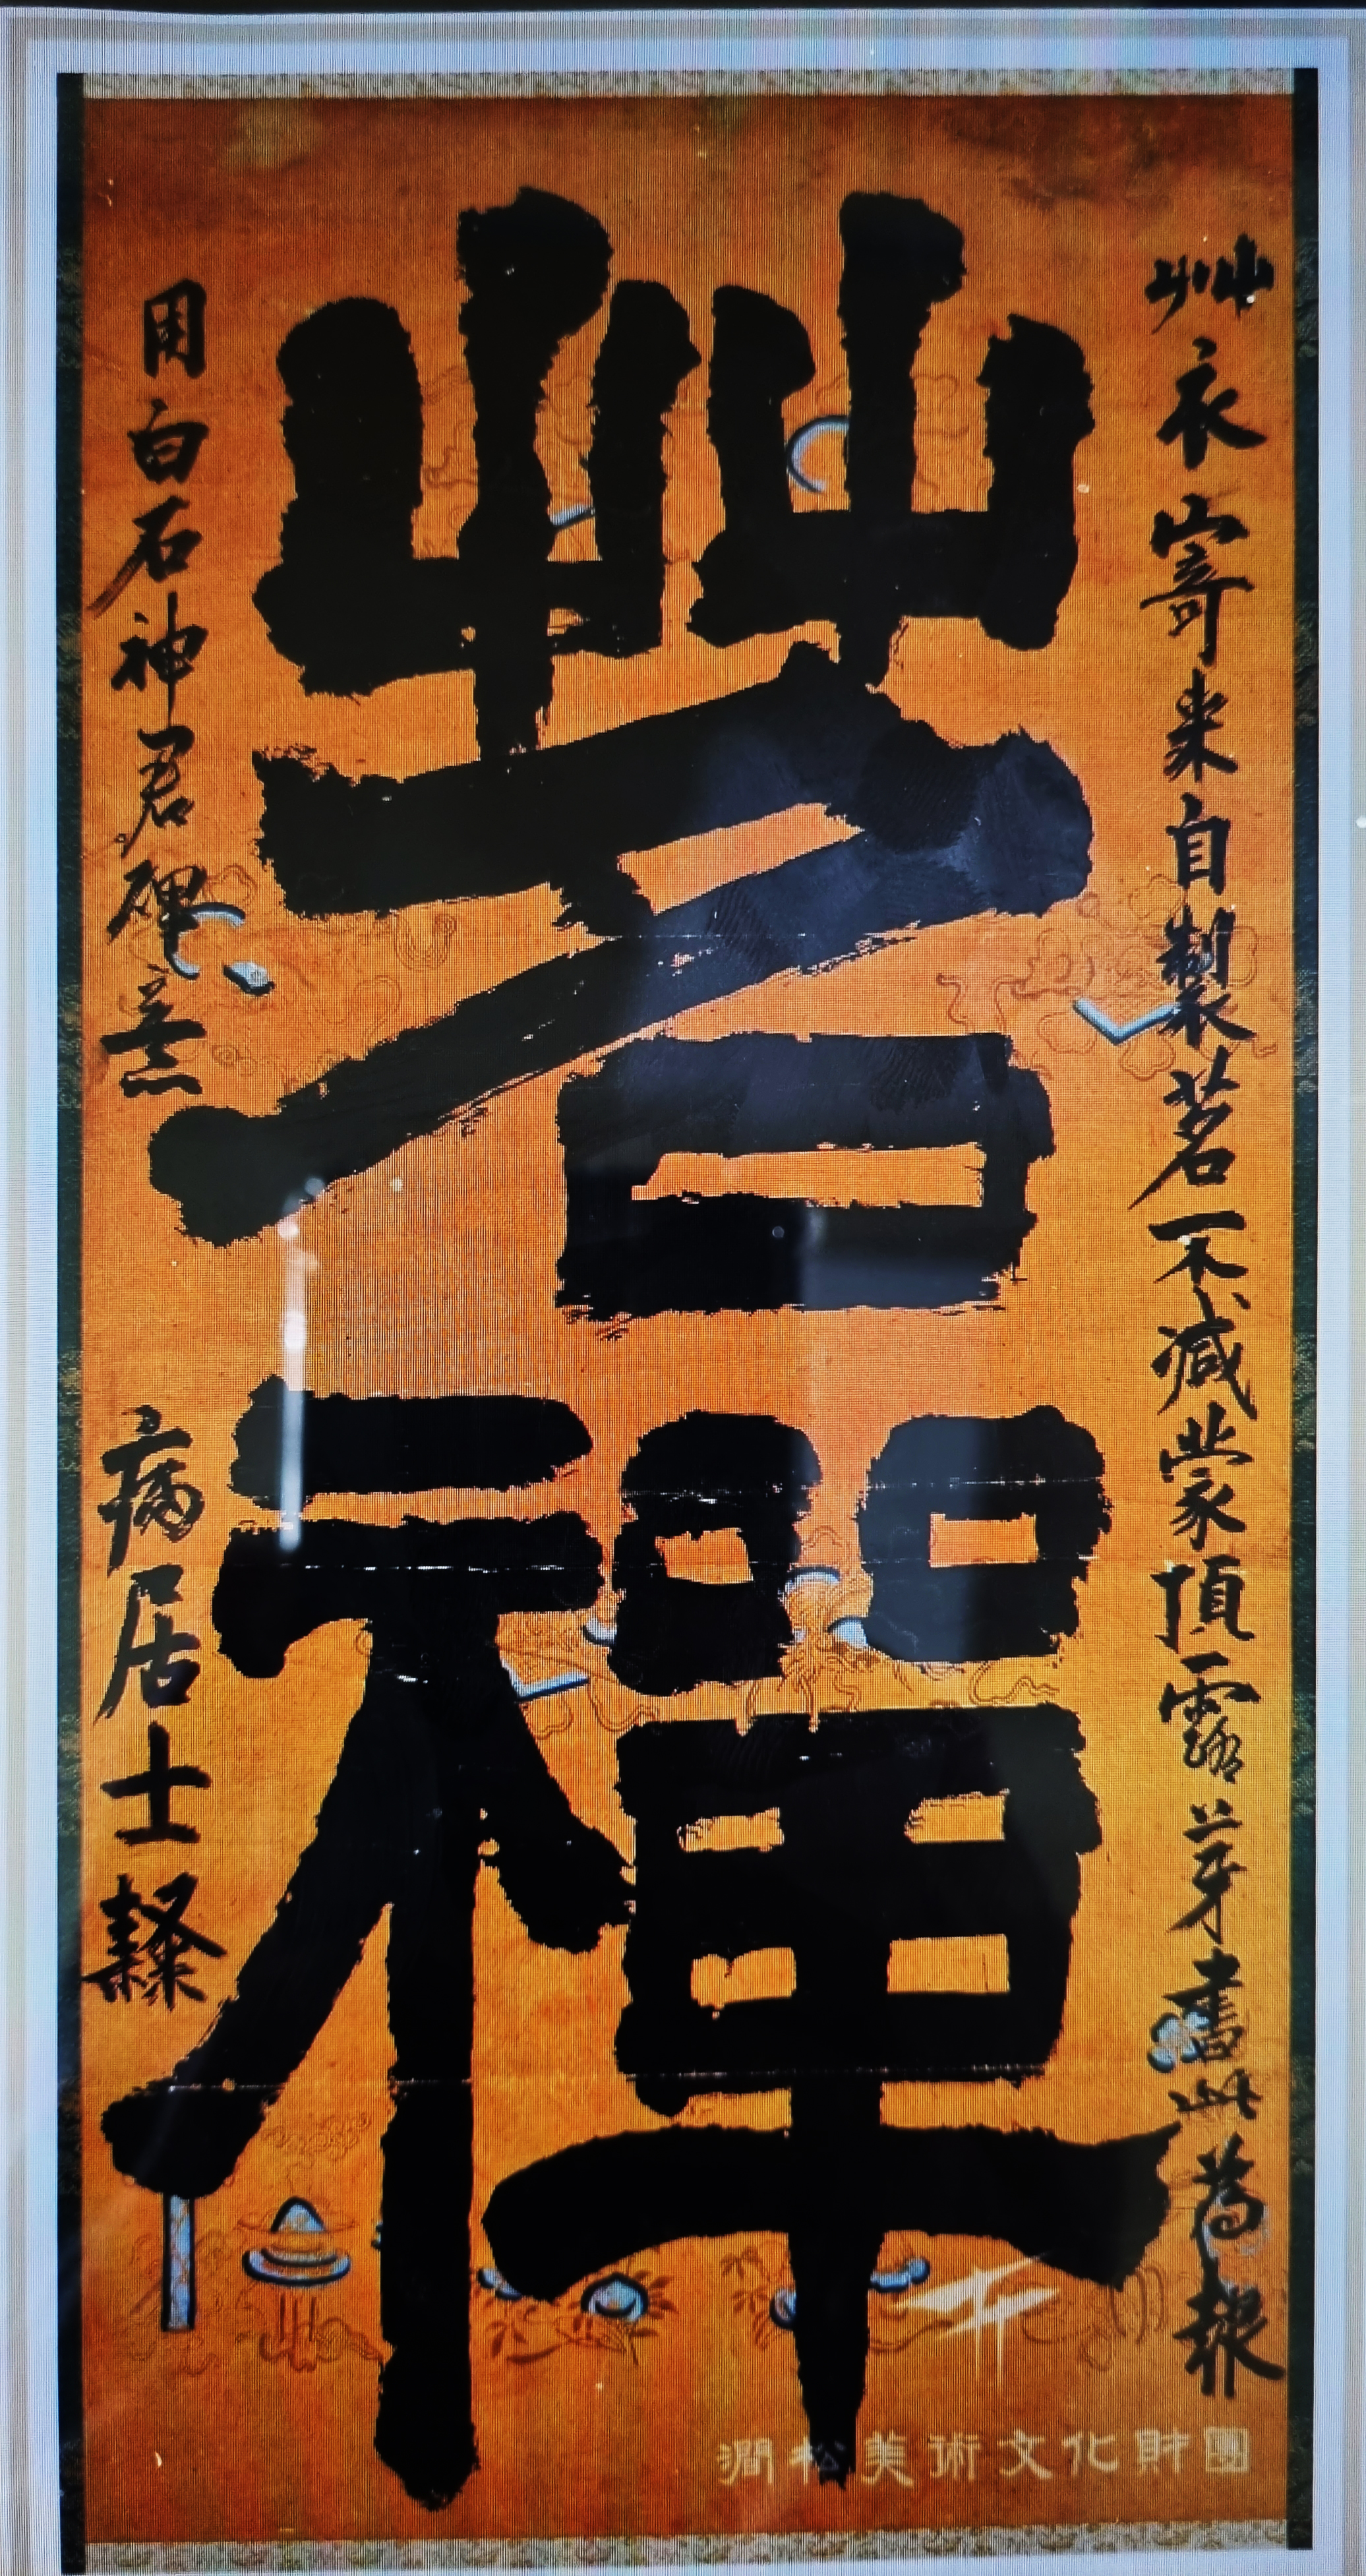 茗禪
艸衣寄来自製茗不減蒙頂露芽書此為報
用白石神君碑意
病居士隸
澗松美術文化財團